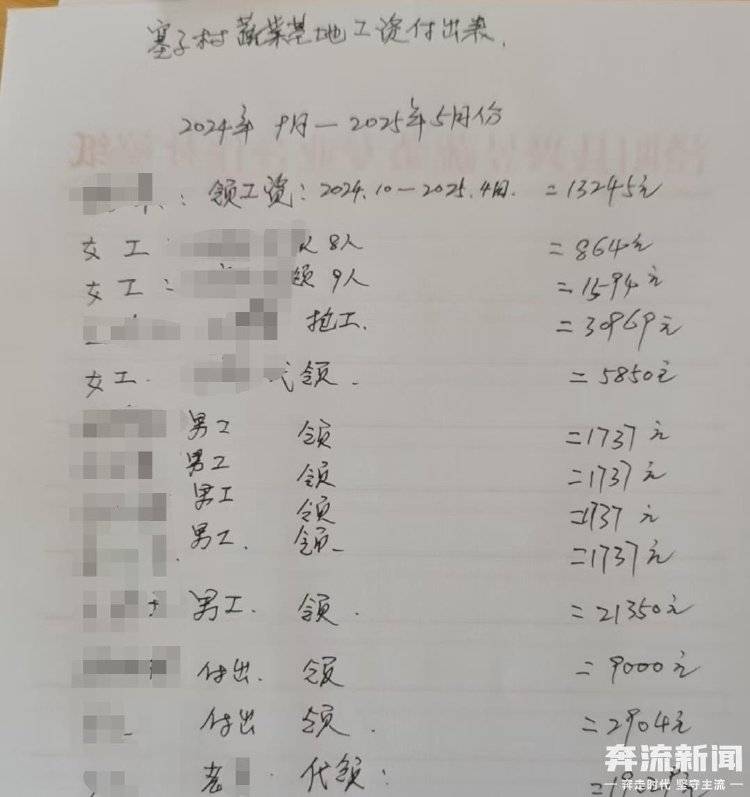 寨子村蔬菜基地工资付出表.
2024年9月—2025年5月份
: 领工资: 2024.10—2025.4月. =13245元
女工: 8人 =864元
女工: 领9人 =1594元
抢工. =30969元
女工. 代领. =5850元
男工 领 =1737元
男工 领 =1737元
男工 领 =1737元
男工. 领 =1737元
男工. 领. =21350元
付出. 领 =9000元
付出 领. =2904元
老 . 代领:
奔流新闻
奔走时代 坚守主流